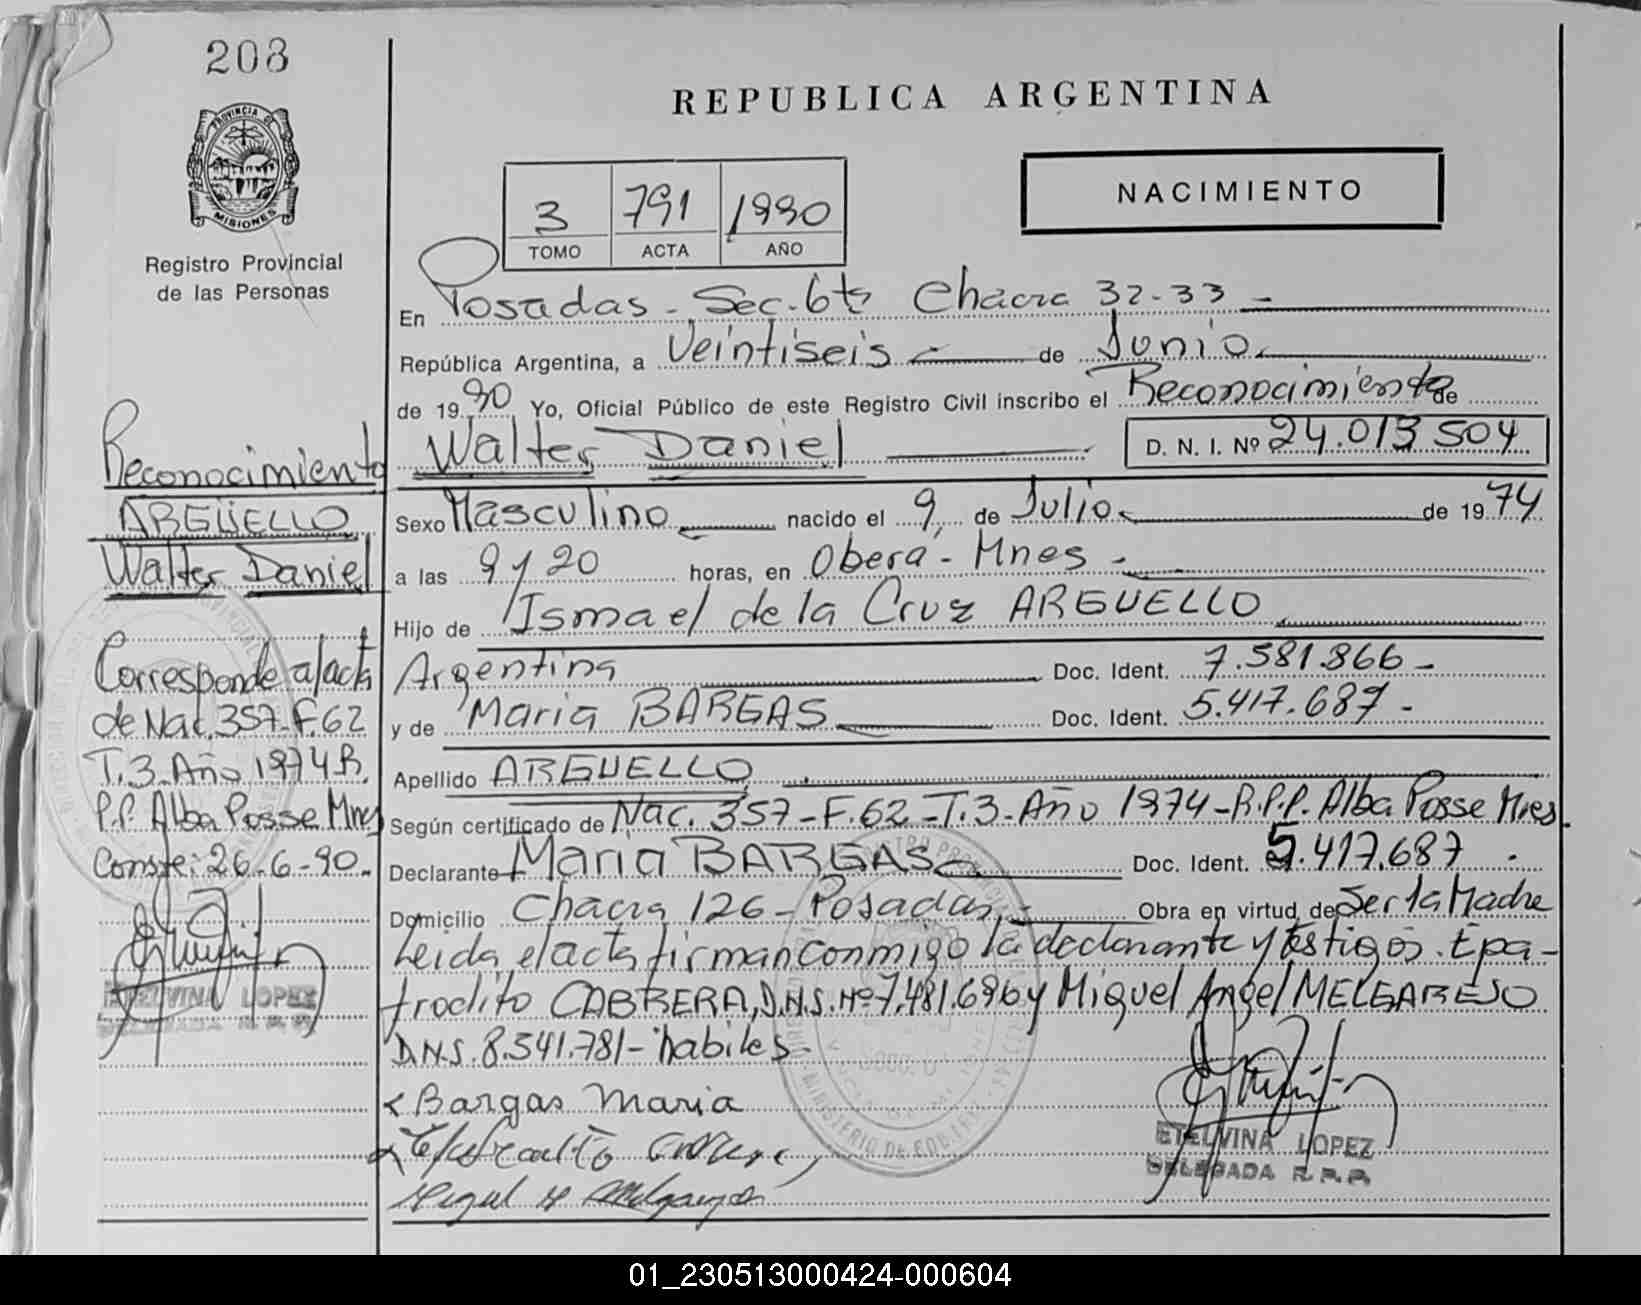 208
PROVINCIA DE
MISIONES
Registro Provincial
de las Personas
REPUBLICA ARGENTINA
NACIMIENTO
3 791 1990
TOMO ACTA AÑO
En Posadas - Sec. 6ta Chacra 32-33 -
República Argentina, a Veintiseis de Junio
de 1990 Yo, Oficial Público de este Registro Civil inscribo el Reconocimiento de
Walter Daniel D. N. I. Nº 24.013504
Sexo Masculino nacido el 9 de Julio de 1974
a las 9 y 20 horas, en Oberá - Mnes -
Hijo de Ismael de la Cruz ARGUELLO
Argentina Doc. Ident. 7.581.866 -
y de Maria BARGAS Doc. Ident. 5.417.687 -
Apellido ARGUELLO
Según certificado de Nac. 357 - F. 62 - T. 3 - Año 1974 - R.P.P. Alba Posse Mnes.
Declarante Maria BARGAS Doc. Ident. 5.417.687
Domicilio Chacra 126 - Posadas, - Obra en virtud de Ser la Madre
Leida el acta firman conmigo la declarante y testigos. Epa-
frodito CABRERA, D.N.I. Nº 7.481.696 y Miguel Angel MELGAREJO
D.N.I. 8.541.781 - habiles -
Bargas Maria
ETELVINA LOPEZ
DELEGADA R. P. P.
Reconocimiento
ARGÜELLO
Walter Daniel
Corresponde al acta
de Nac. 357 - F. 62
T. 3 - Año 1974 R.
P.P. Alba Posse Mnes
Conste: 26-6-90.-
ETELVINA LOPEZ
DELEGADA R. P. P.
MINISTERIO DE GOBIERNO
01_230513000424-000604